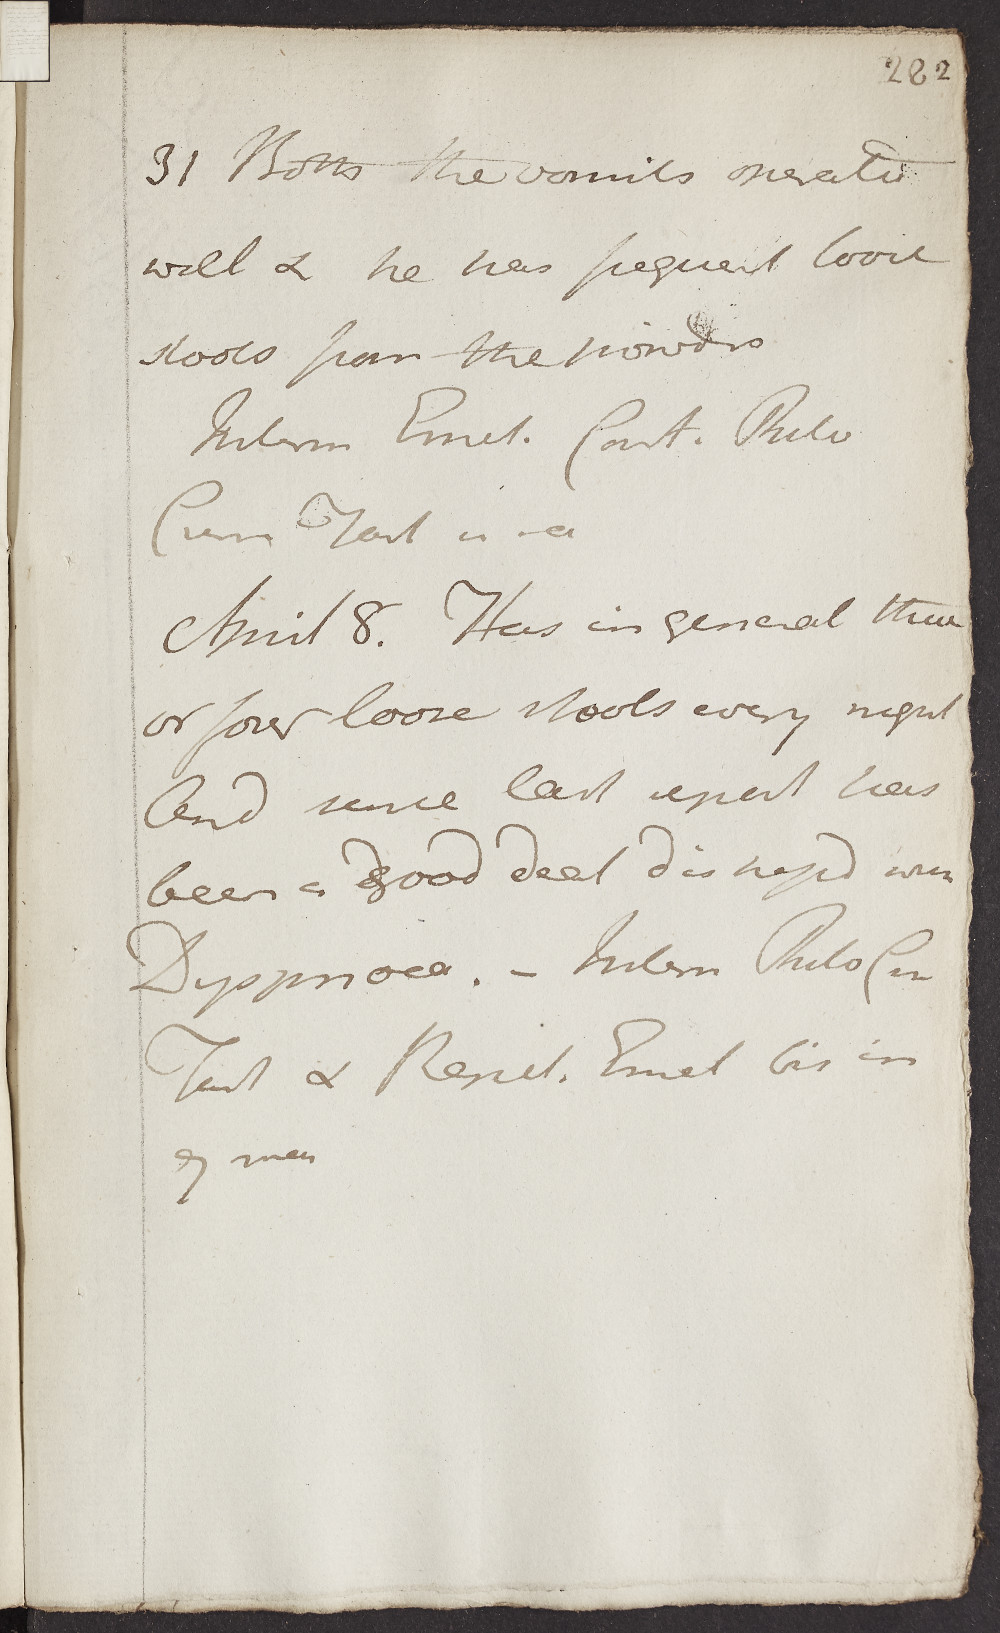 282
31 Both the vomits operated
well & he has frequent loose
stools from the powders
Interm Emet. Cont. Pulv
Crem Tart
April 8. Has in general three
or four loose stools every night
And since last report has
been a good deal distressd with
Dyspnoea. - Interm Pulv Crem
Tart & Repet. Emet bis in